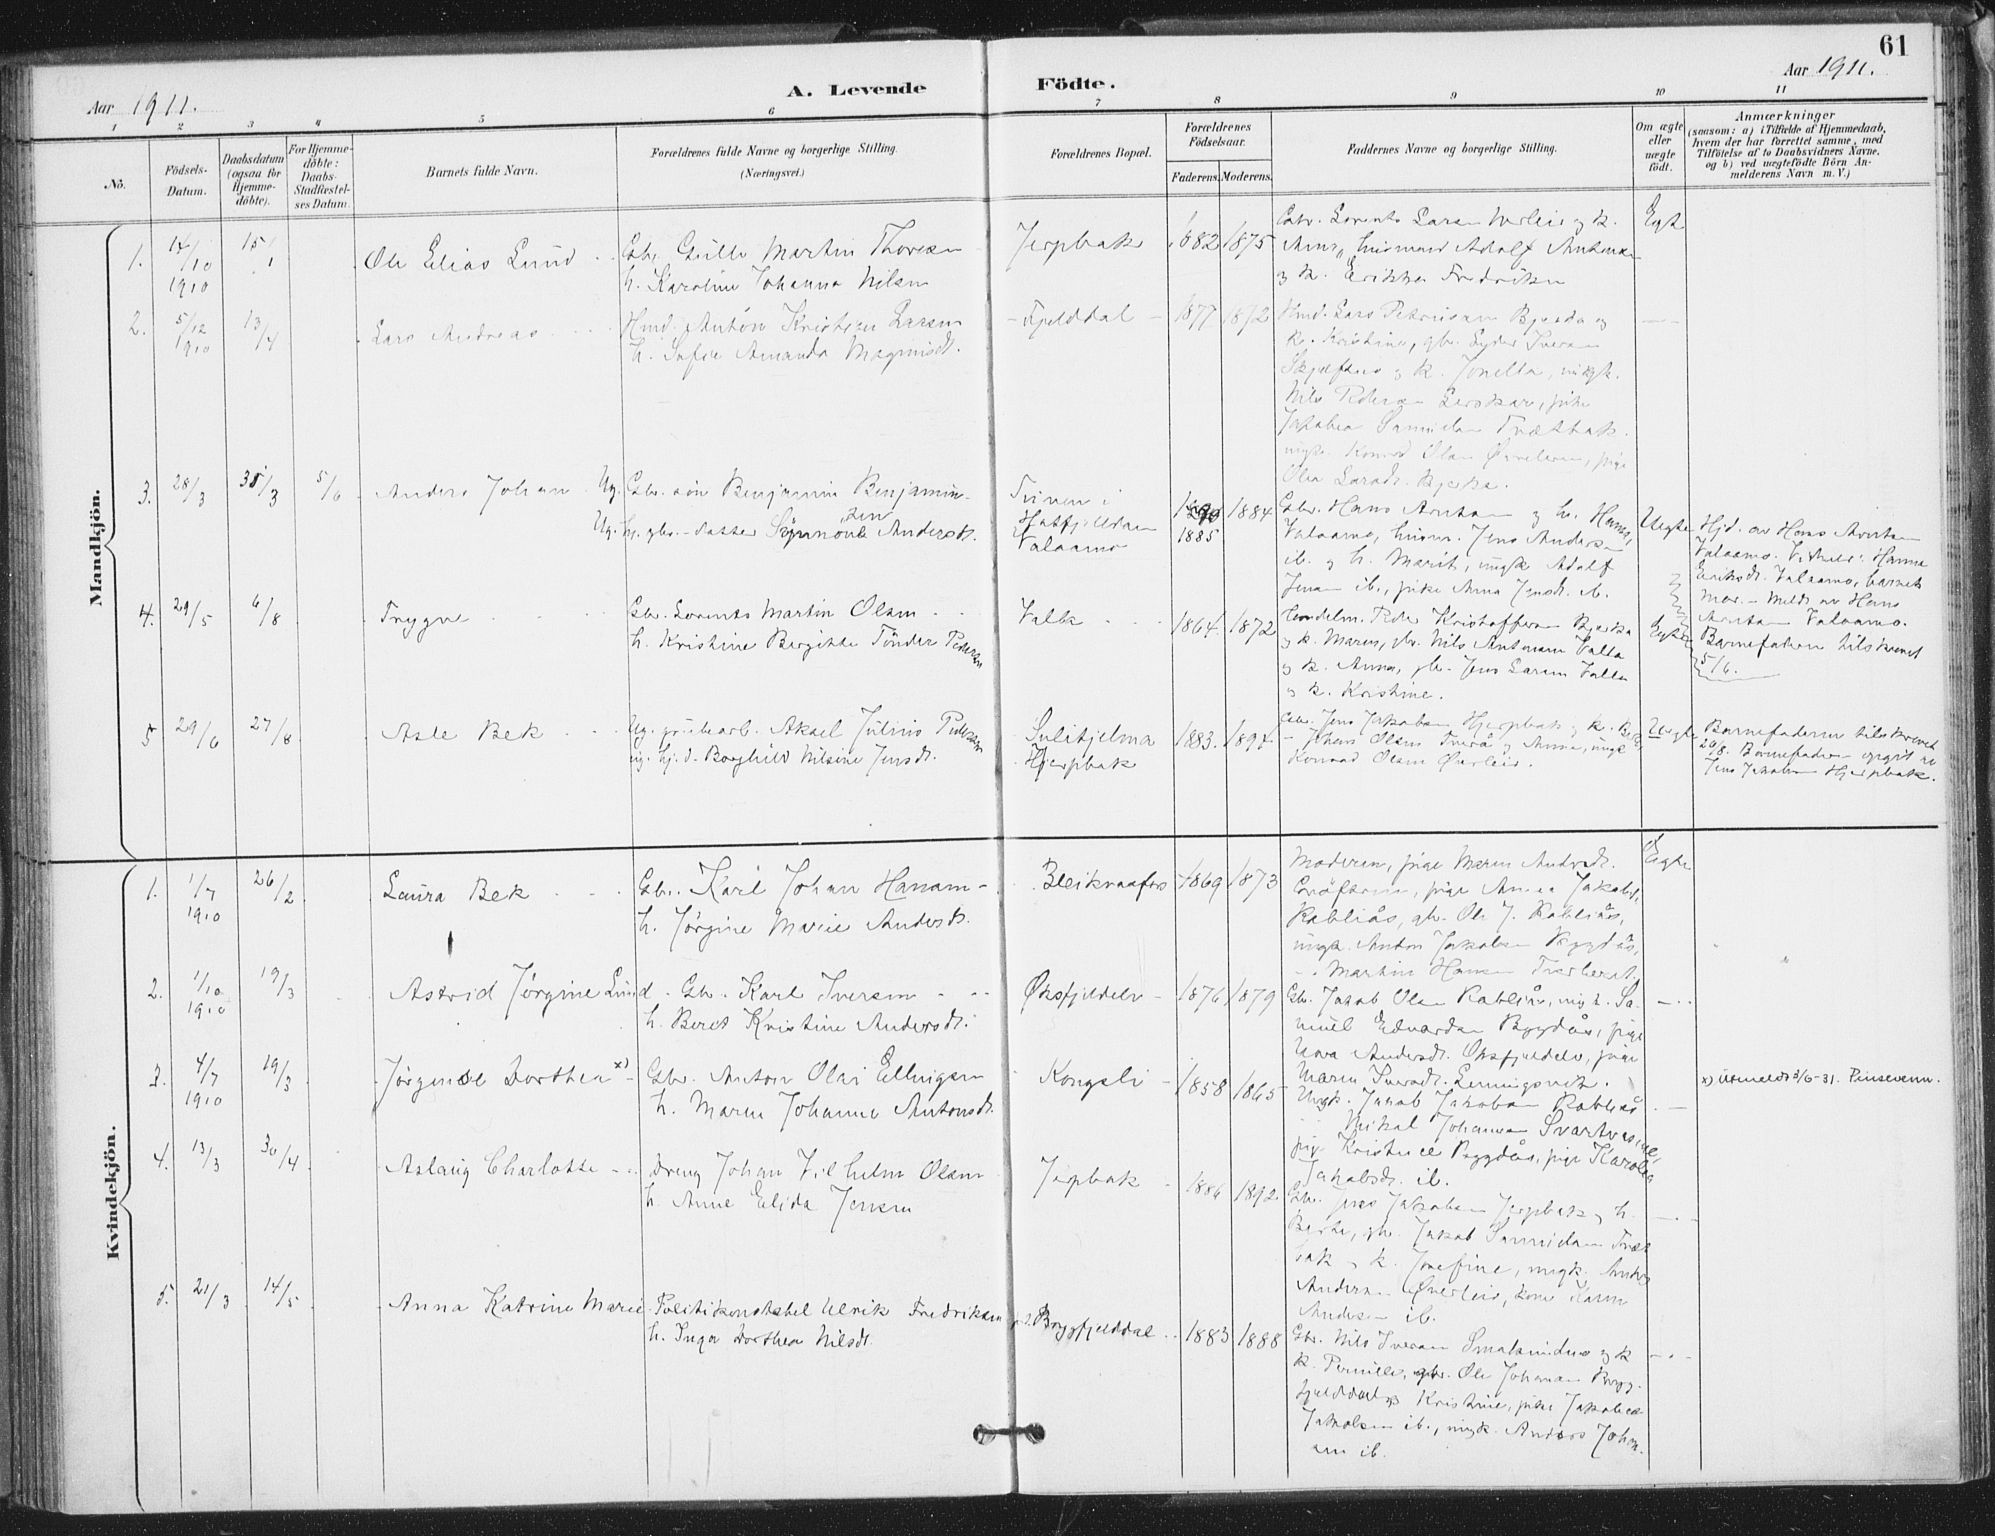 61
Aar 1911.
A. Levende
Födte.
Aar 1911.
1 2 3 4 5 6 7 8 9 10 11
No.
Födsels-
Datum.
Daabsdatum
(ogsaa for
Hjemme-
döbte).
For Hjemme-
döbte:
Daabs-
Stadfæstel-
ses Datum.
Barnets fulde Navn.
Forældrenes fulde Navne og borgerlige Stilling.
(Næringsvei.)
Forældrenes Bopæl.
Forældrenes
Födselsaar.
Faderens. Moderens.
Faddernes Navne og borgerlige Stilling.
Om ægte
eller
uægte
födt.
Anmærkninger
(saasom: a) i Tilfælde af Hjemmedaab,
hvem der har forrettet samme, med
Tilföielse af to Daabsvidners Navne.
og b) ved uægtefödte Börn An-
melderens Navn m. V.)
Mandkjön.
1. 14/10 1910 15/1 Ole Elias Lund
Gbr. Gulle Martin Thoresen
h. Karoline Johanna Nilsen
Jerpbak 1882 1875
Gbr. Lorents Larsen Øverleir og k.
Adolf Antonsen
og k. Erikka Fredriksen
Egte
2. 5/12 1910 13/4 Lars Andreas
Hmd. Anton Kristian Larsen
h. Sofie Amanda Magnusdt.
Fjelddal 1877 1872
Hmd. Lars Petersen Bjerka og
k. Kristine, gbr. Iversen
og k. Jonella, ungk.
Nils Pedersen pike
Samuelsen Tvætbak
ungk. Konrad Olsen Øverleir, pige
Larsdt. Bjerka.
3. 28/3 30/3 5/6 Anders Johan
Ug. Gbr. søn Benjamin Benjamin-
sen
Ug. h. gbr.-datter Synnöve Andersdt.
Hatfjelldalen
Valaamo
1885 1884
Gbr. Hans Arntsen og h. Hanna,
Valaamo, husm. Jens Andersen
ib. og h. Marit, ungk. Adolf
Jensen ib., pike Anna Jensdt. ib.
Uegte
Hjd. av Hans Arntsen
Valaamo. Vidner: Hanna
Eriksdt. Valaamo, barnets
mor. - Meldt av Hans
Arntsen Valaamo.
Barnefaderen tilskrevet
5/6.
4. 29/5 6/8 Trygve
Gbr. Lorents Martin Olsen
h. Kristine Bergitte Tönder Pedersen
Valla 1864. 1872
Handelm. Peder Kristoffersen Bjerka
og k. Maren, gbr. Nils Antonsen Valla
og k. Anna, gbr. Jens Larsen Valla
og k. Kristine.
Egte
5 29/6 27/8 Asle Bek
Ug. grubearb. Aksel Julius Pedersen
ug. hj. d. Borghild Nilsine Jensdt.
Sulitjelma
Hjerpbak
1883. 1894.
Gbr. Jens Jakobsen Hjerpbak og k. Berte,
Johan Olsen Tverå og Anna, ungk.
Konrad Olsen Øverleir.
Uegte
Barnefaderen tilskrevet
29/8. Barnefaderen opgit av
Jens Jakobsen Hjerpbak.
Kvindekjön.
1. 1/7 1910 26/2 Laura Bek
Gbr. Karl Johan Hansen
h. Jörgine Marie Andersdt.
Bleikvasfors 1869 1873
Moderen, pige Maren Andersdt.
pige Anna Jakobsdt.
Kabliås, gbr. Ole J. Kabliås,
ungk. Anton Jakobsen Bygdås,
Martin Hansen
Egte
2. 1/10 1910 19/3 Astrid Jörgine Lund
Gbr. Karl Iversen
h. Beret Kristine Andersdt.
Øksfjeldelv 1876 1879
Gbr. Jakob Olsen Kabliås, ungk. Sa-
muel Edvardsen Bygdås, pige
Andersdt. Øksfjeldelv, pige
Maren Iversdt. Lenningsvik.
3. 4/7 1910 19/3 Jørgende Dorthea x)
Gbr. Anton Olai Ellingsen
h. Maren Johanna Antonsdt.
Kongsli 1858 1865
Ungk. Jakob Jakobsen Kabliås
Mikal Johansen Svartvasmo,
pige Kristense Bygdås, pige Karolina
Jakobsdt. ib.
x) Utmeldt 3/6-31. Pinsevenn.
4. 13/3 30/4 Aslaug Charlotte
Dreng Johan Vilhelm Olsen
h. Anne Elida Jensen
Jerpbak 1886 1892.
Gbr. Jens Jakobsen Jerpbak og h.
Berte, gbr. Jakob Samuelsen Tvæt-
bak og k. Josefine, ungk. Anders
Andersen Øverleir, kone Karen
Andersen ib.
5. 21/3 14/5 Anna Katrine Marie
Politikonstabel Ulrik Fredriksen
h. Inga Dorthea Nilsdt.
Bryggfjelddal 1883 1888
Gbr. Nils Iversen og k.
k. Pernille, gbr. Ole Johansen Brygg-
fjelddal og Kristine, pike Jakobea
Jakobsen ib., ungk. Anders Johan-
sen ib.